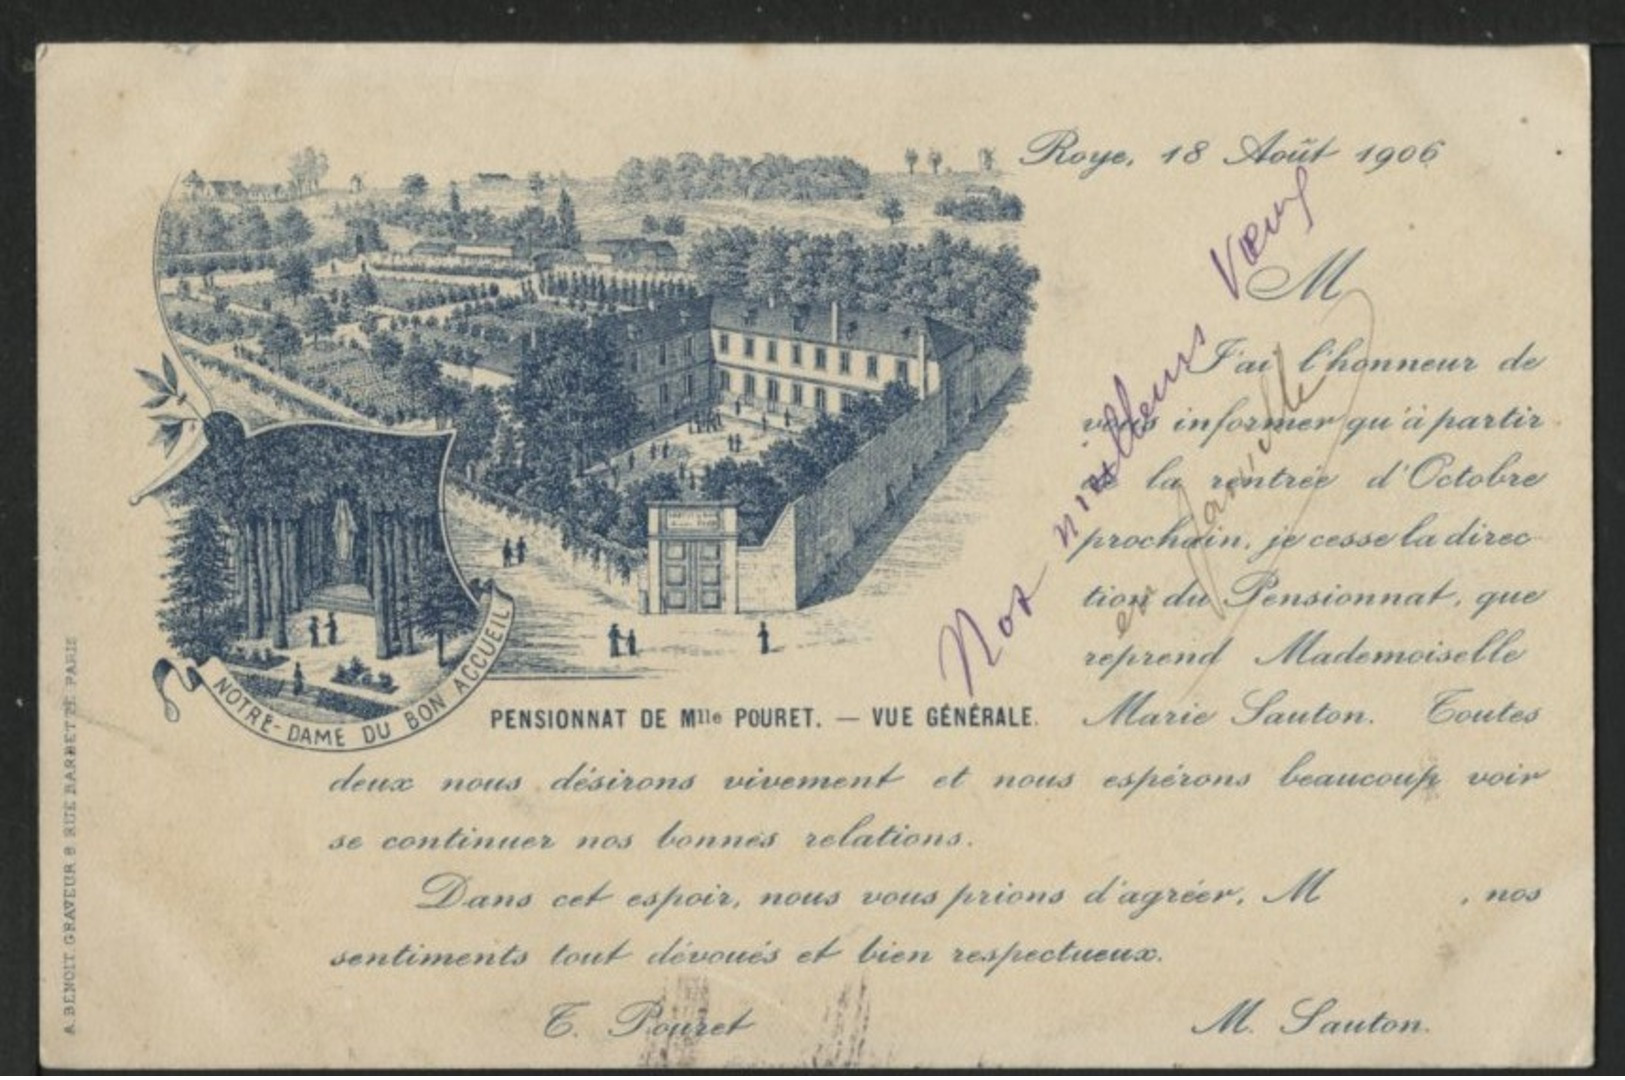 Roye, 18 Août 1906
M
J'ai l'honneur de
vous informer qu'à partir
de la rentrée d'Octobre
prochain, je cesse la direc-
tion du Pensionnat, que
reprend Mademoiselle
Marie Sauton. Toutes
deux nous désirons vivement et nous espérons beaucoup voir
se continuer nos bonnes relations.
Dans cet espoir, nous vous prions d'agréer, M , nos
sentiments tout dévoués et bien respectueux.
T. Pouret M. Sauton.
NOTRE-DAME DU BON ACCUEIL
PENSIONNAT DE Mlle POURET. — VUE GÉNÉRALE.
Nos meilleurs Vœux
en famille
A. BENOIT GRAVEUR 8 RUE BARBETTE PARIS